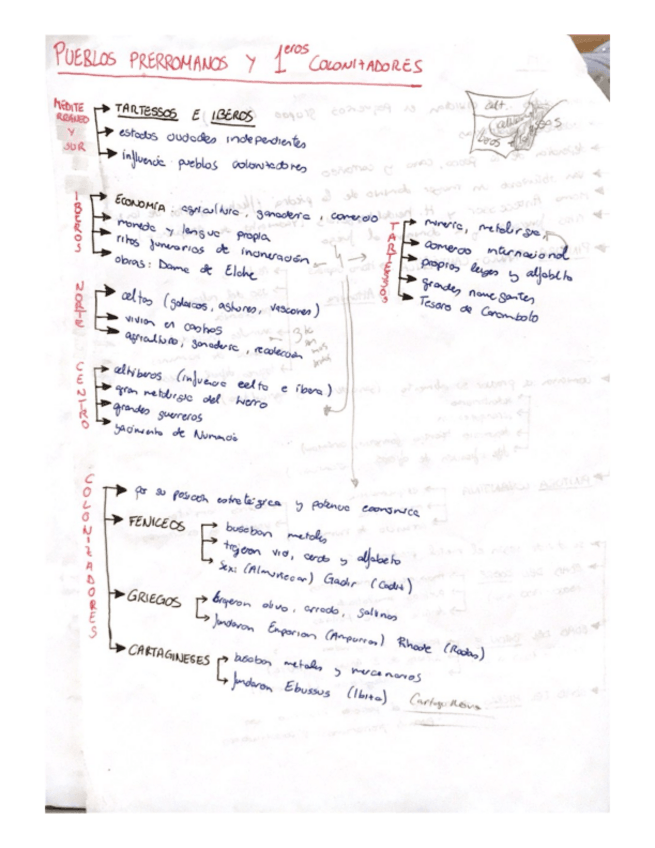 PUEBLOS PRERROMANOS Y 1eros COLONITADORES
MEDITE
RRANEO
Y
SUR
TARTESSOS E IBEROS
estados ciudades independientes
influencia pueblos colonizadores
IBEROS
ECONOMÍA: agricultura, ganaderia, comercio
moneda y lengua propia
ritos funerarios de incineración
obras: Dama de Elche
TARTESSOS
mineria, metalurgia,
comercio internacional
propias leyes y alfabeto
grandes navegantes
Tesoro de Carambolo
NORTE
celtas (galaicos, astures, vascones)
vivian en castros
agricultura, ganaderia, recolección
CENTRO
celtiberos (influencia celta e ibera)
gran metalurgia del hierro
grandes guerreros
yacimiento de Numancia
COLONIZADORES
por su posición estratégica y potencia económica
FENICEOS
buscaban metales
trajeron vid, cerdo y alfabeto
Sexi (Almuñecar) Gadir (Cadiz)
GRIEGOS
trajeron olivo, arado, salinas
fundaron Emporion (Ampurias) Rhode (Rodas)
CARTAGINESES
buscaban metales y mercenarios
fundaron Ebussus (Ibiza)